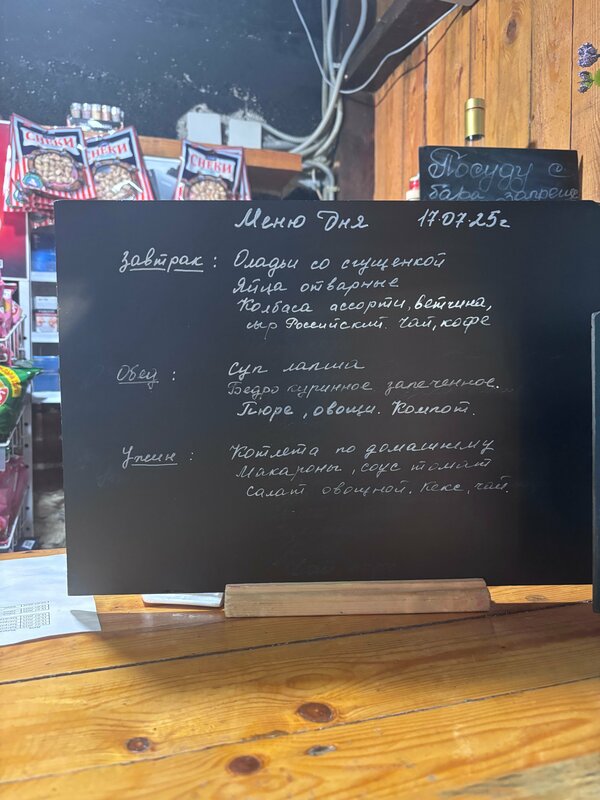 СНЕКИ
СНЕКИ
СНЕКИ
Посуду с
бара запреще
Меню Дня 17.07.25г
Завтрак: Оладьи со сгущенкой
Яйца отварные
Колбаса ассорти, ветчина,
сыр Российский. Чай, кофе
Обед: Суп лапша
Бедро куринное запеченное.
Пюре, овощи. Компот.
Ужин: Котлета по домашнему
Макароны, соус томат
Салат овощной, Кекс, чай.